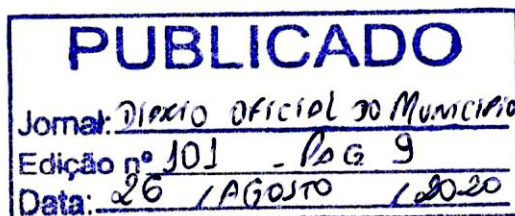 PUBLICADO
Jornal: DIÁRIO OFICIAL DO MUNICIPIO
Edição nº 101 - PAG 9
Data: 26 / AGOSTO / 2020